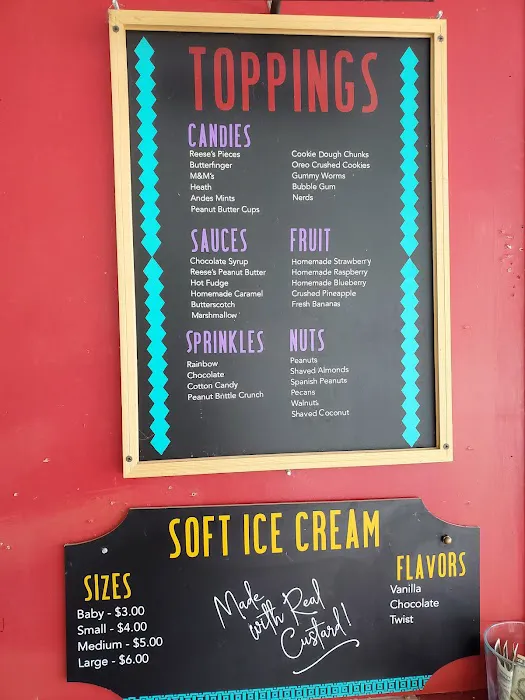 TOPPINGS
CANDIES
Reese's Pieces
Butterfinger
M&M's
Heath
Andes Mints
Peanut Butter Cups
Cookie Dough Chunks
Oreo Crushed Cookies
Gummy Worms
Bubble Gum
Nerds
SAUCES
Chocolate Syrup
Reese's Peanut Butter
Hot Fudge
Homemade Caramel
Butterscotch
Marshmallow
FRUIT
Homemade Strawberry
Homemade Raspberry
Homemade Blueberry
Crushed Pineapple
Fresh Bananas
SPRINKLES
Rainbow
Chocolate
Cotton Candy
Peanut Brittle Crunch
NUTS
Peanuts
Shaved Almonds
Spanish Peanuts
Pecans
Walnuts
Shaved Coconut
SOFT ICE CREAM
SIZES
Baby - $3.00
Small - $4.00
Medium - $5.00
Large - $6.00
Made
with Real
Custard!
FLAVORS
Vanilla
Chocolate
Twist